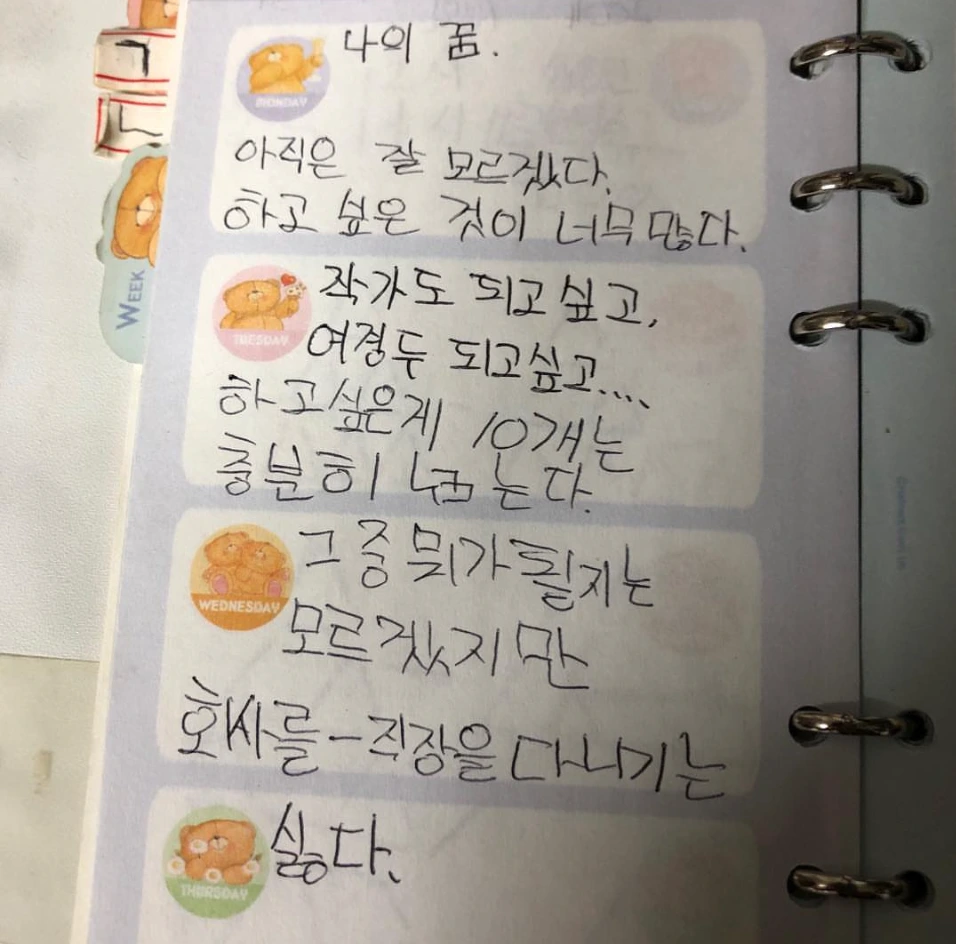 ㄱ
ㄴ
WEEK
MONDAY
나의 꿈.
아직은 잘 모르겠다.
하고 싶은 것이 너무 많다.
TUESDAY
작가도 되고싶고,
여경두 되고싶고....
하고싶은게 10개는
충분히 넘는다.
WEDNESDAY
그 중 뭐가 될지는
모르겠지만
회사를-직장을 다니기는
THURSDAY
싫다.